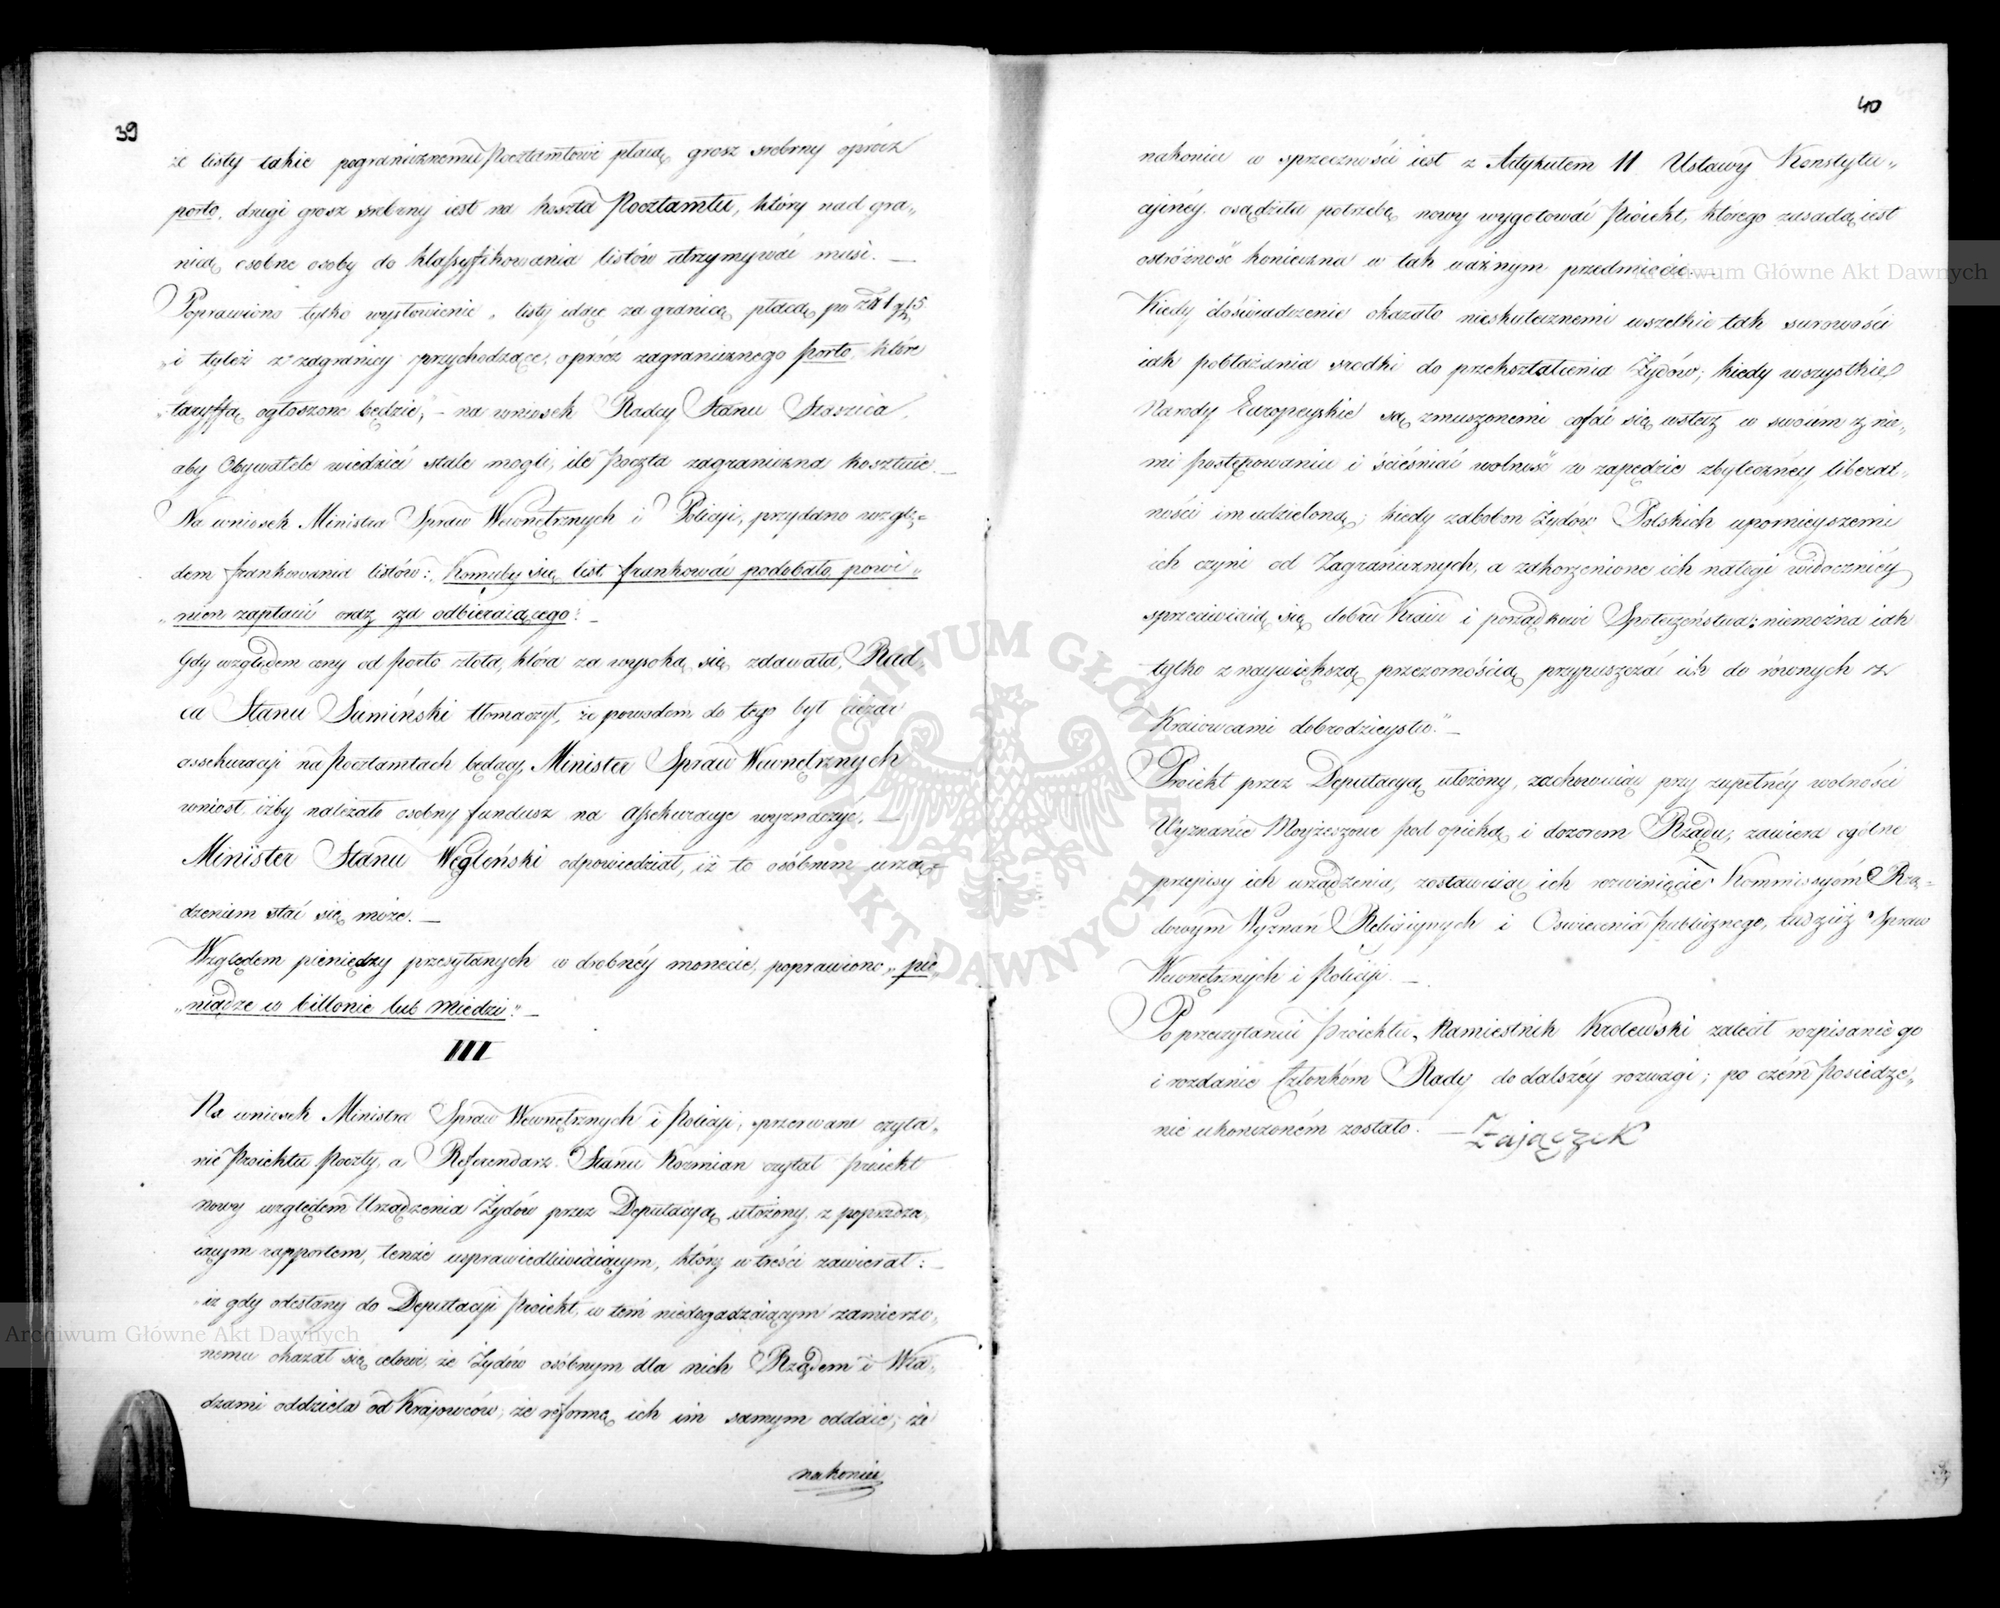 39
że listy takie pogranicznemu Pocztamtowi płacą grosz srebrny oprócz
porto, drugi grosz srebrny iest na koszta Pocztamtu, który nad gra„
nicą osobne osoby do klassyfikowania listów utrzymywać musi. —
Poprawiono tylko wysłowienie „ listy idące za granicę płacą po zł 1 g 15
„i tyleż z zagranicy przychodzące, oprócz zagranicznego porto, które
„taryffą ogłoszone będzie, – na wniosek Radcy Stanu Staszica,
aby Obywatele wiedzieć stale mogli, ile poczta zagraniczna kosztuie. —
Na wniosek Ministra Spraw Wewnętrznych i Policyi, przydano wzglę=
dem frankowania listów: Komuby się list frankować podobało, powi„
„nien zapłacić oraz za odbieraiącego: —
Gdy względem ceny od porto złota, która za wysoką się zdawała, Rad„
ca Stanu Sumiński tłomaczył, że powodem do tego był ciężar
assekuracyi na Pocztamtach będący, Minister Spraw Wewnętrznych
wniosł, iżby należało osobny fundusz na assekuracye wyznaczyć. —
Minister Stanu Węgleński odpowiedział, iż to osóbnem urzą=
dzeniem stać się może. —
Względem pieniędzy przesyłanych w drobnéy monecie, poprawiono „pie„
„niądze w billonie lub miedzi". —
III
Na wniosek Ministra Spraw Wewnętrznych i Policyi, przerwane czyta„
nie Proiektu Poczty, a Referendarz Stanu Kozmian czytał proiekt
nowy względem Urządzenia Żydów przez Deputacyą ułożony, z poprzedza„
iącym rapportem, tenże usprawiedliwiaiącym, który w treści zawierał: —
„iż gdy odesłany do Deputacyi Proiekt, w tem niedogadzaiącym zamierzo„
nemu okazał się celowi, że Żydów osóbnym dla nich Rządem i Wła„
dzami oddziela od Krajowców, że reformę ich im samym oddaie; że
nakoniec
40
nakoniec w sprzeczności iest z Artykułem 11 Ustawy Konstytu„
cyinéy, osądziła potrzebę nowy wygotować Proiekt, którego zasadą iest
ostróżność konieczna w tak ważnym przedmiocie. —
Kiedy doświadczenie okazało nieskutecznemi wszelkie tak surowości
iak pobłażania srodki do przekształcenia Żydów; kiedy wszystkie
Narody Europeyskie są zmuszonemi cofać się wstecz w swoiem z nie„
mi postępowaniu i ścieśniać wolność w zapędzie zbyteczney liberal„
ności im udzieloną; kiedy zabobon Żydów Polskich upornieyszemi
ich czyni od Zagranicznych, a zakorzenione ich nałogi widoczniéy
sprzeciwiaią się dobru Kraiu i porządkowi Społeczeństwa; niemożna iak
tylko z naywiększą przezornością przypuszczać ich do równych z
Kraiowcami dobrodzieystw." —
Proiekt przez Deputacyą ułożony, zachowuiąc przy zupełnéy wolności
Wyznanie Moyżeszowe pod opieką i dozorem Rządu, zawiera ogólne
przepisy ich urządzenia, zostawuiąc ich rozwinięcie Kommissyóm Rzą=
dowym Wyznań Religiynych i Oswiecenia publicznego, tudzież Spraw
Wewnętrznych i Policyi. —
Po przeczytaniu Proiektu, Namiestnik Krolewski zalecił rozpisanie go
i rozdanie Członkóm Rady do dalszéy rozwagi; po czém Posiedze„
nie ukonczoném zostało. — Zajączek
Archiwum Główne Akt Dawnych
Archiwum Główne Akt Dawnych
ARCHIWUM GŁÓWNE · AKT DAWNYCH ·